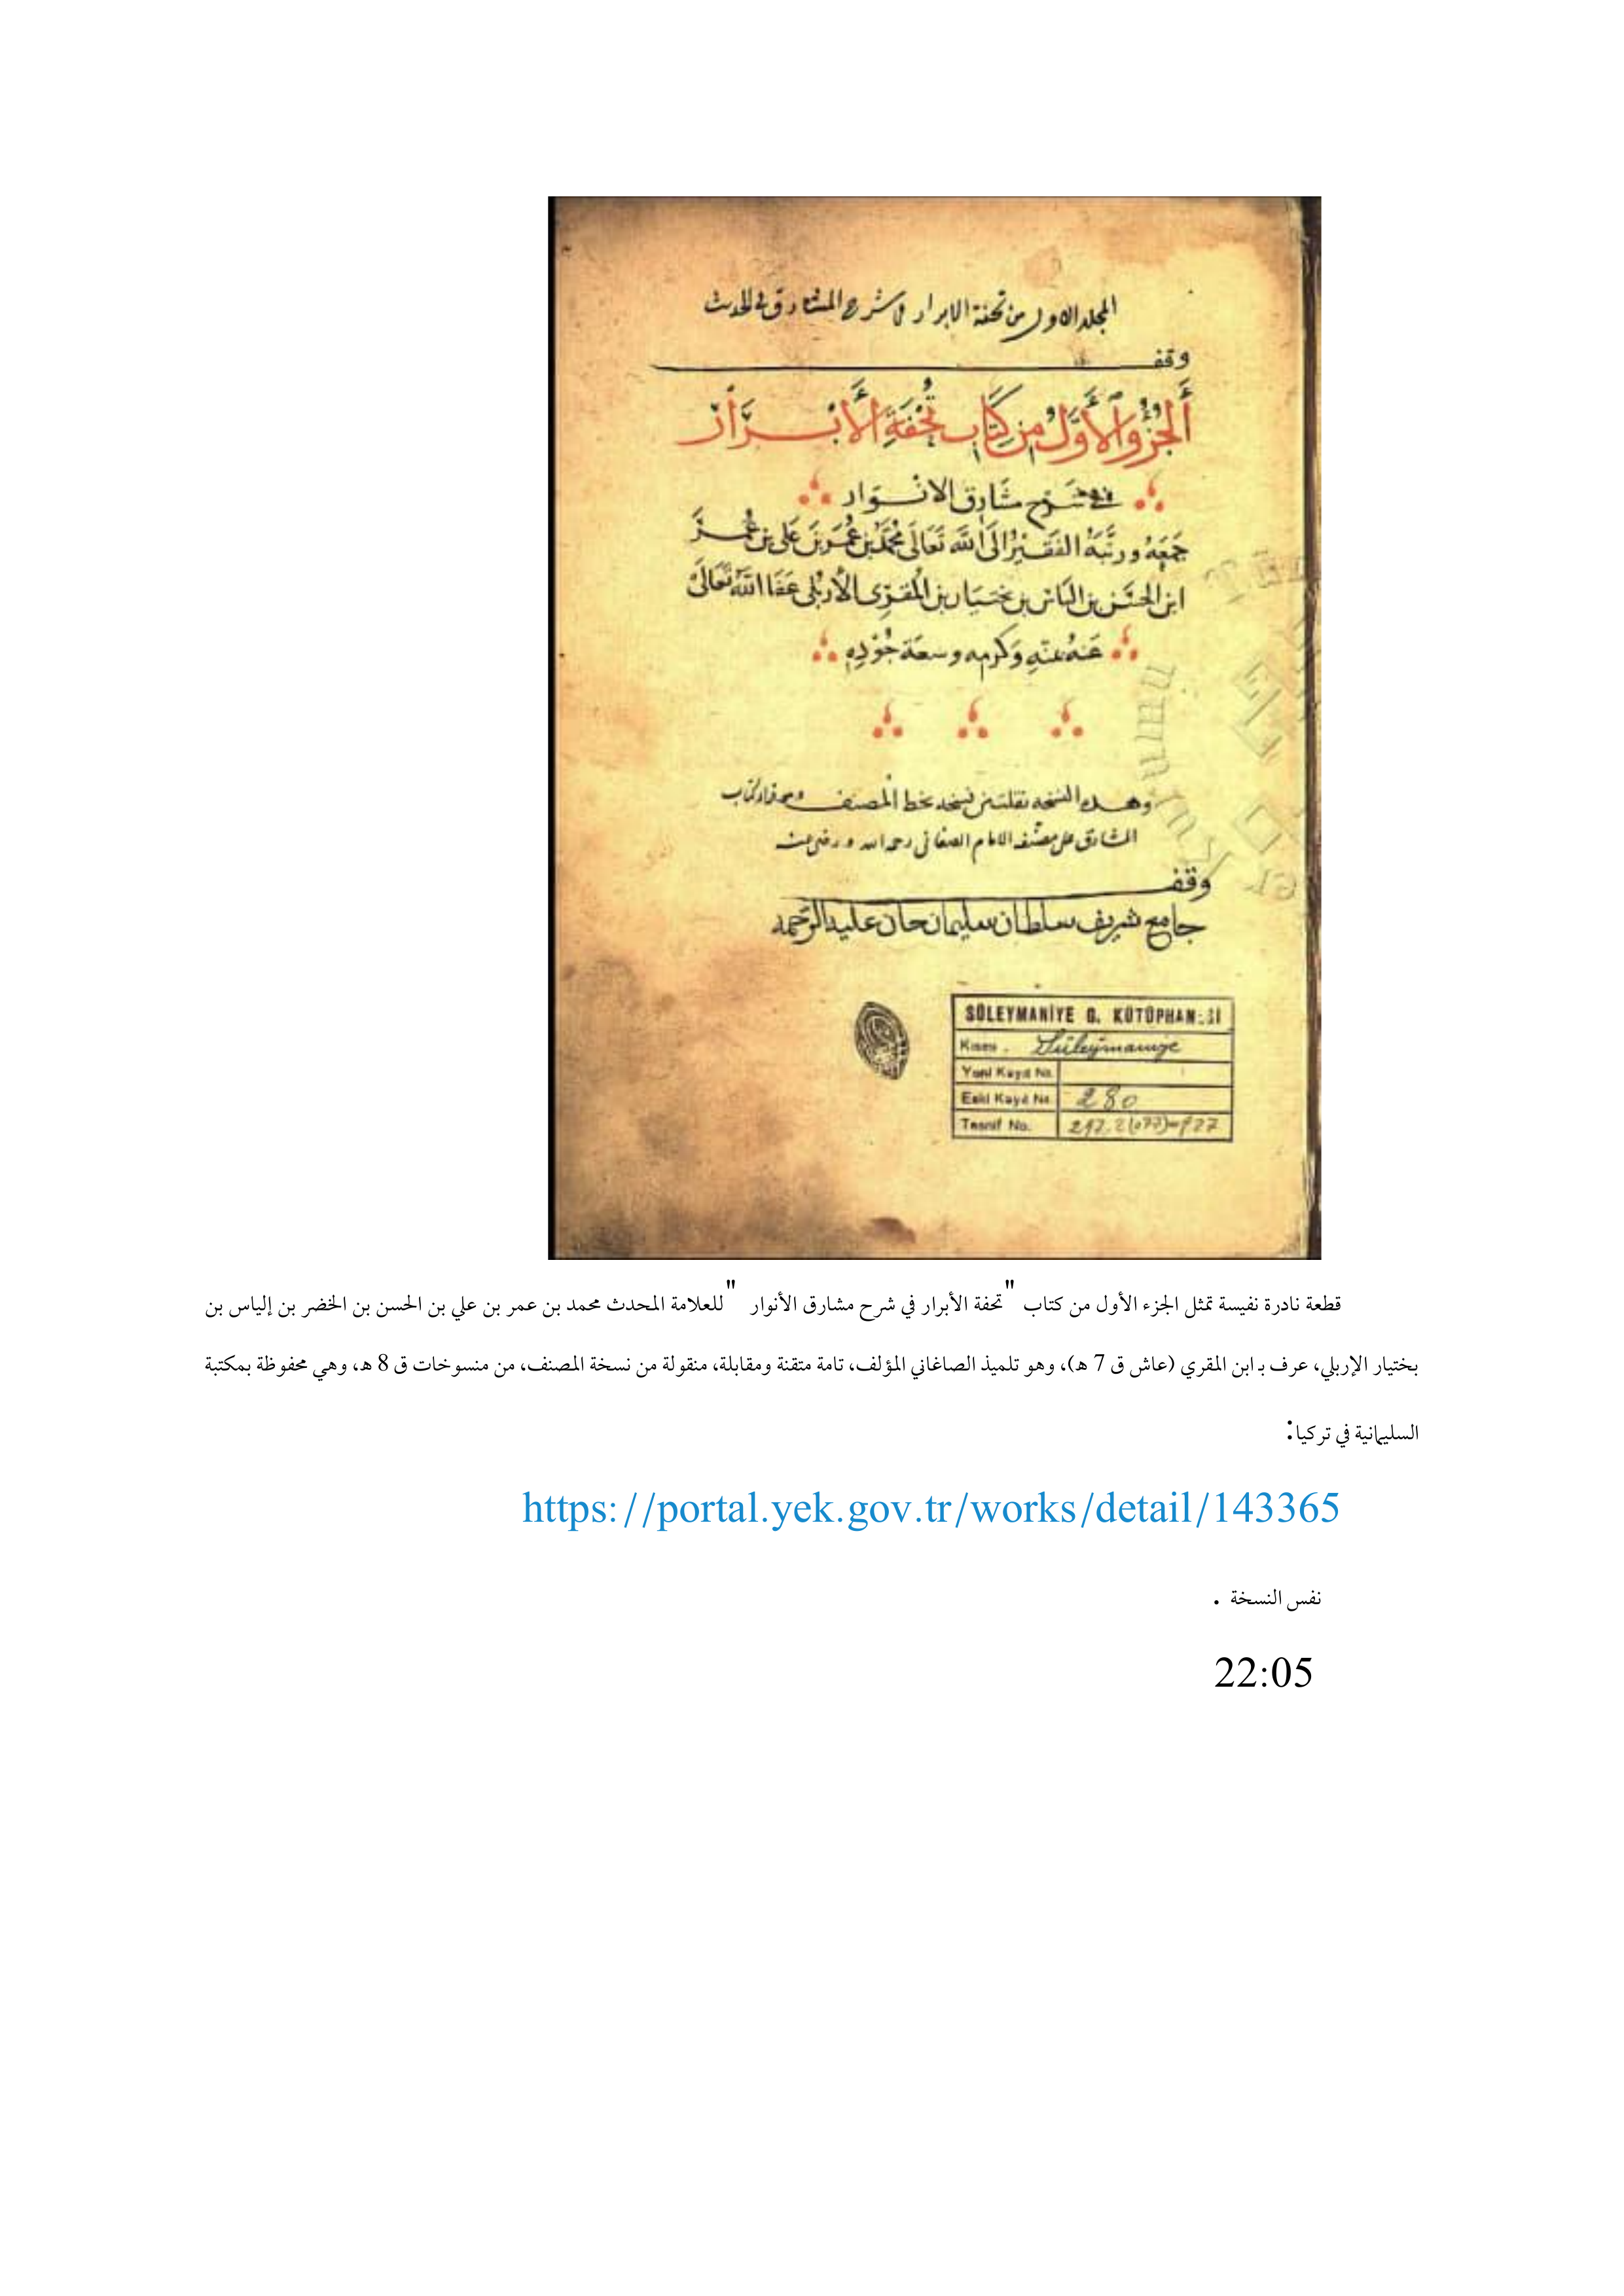 المجلد الاول من تحفة الابرار في شرح المشارق في الحديث
وقف
أَلْجُزْوُ الْأَوَّلُ مِنْ كِتَابِ تُحْفَةِ الْأَبْرَارْ
في شرح مشَارق الانوَار
جَمعَهُ ورتَّبَهُ الفَقِيرُ الَى اللَّه تَعَالَى مُحَمَّد بن عُمَر بن عَلى بن عُمر
ابن الحسَن بن الياس بن بختيار بن المُقرِى الأربلى عَفَا اللهُ تَعَالَى
عَنهُ بمنّهِ وَكرمِه وسعَة جُوْدِهِ
وهذه النسخه نقلت من نسخه بخط المصنف وهو قرا كتاب
المشارق على مصنفه الامام الصغانى رحمه الله ورضى عنه
وقف
جامع شريف سلطان سليمان خان عليه الرحمه
SÜLEYMANİYE G. KÜTÜPHANESİ
Kısmı . Süleymaniye
Yeni Kayıt No.
Eski Kayıt No. 280
Tasnif No. 297.2(077)=927
قطعة نادرة نفيسة تمثل الجزء الأول من كتاب "تحفة الأبرار في شرح مشارق الأنوار "للعلامة المحدث محمد بن عمر بن علي بن الحسن بن الخضر بن إلياس بن
بختيار الإربلي، عرف بـ ابن المقري (عاش ق 7 هـ)، وهو تلميذ الصاغاني المؤلف، تامة متقنة ومقابلة، منقولة من نسخة المصنف، من منسوخات ق 8 هـ، وهي محفوظة بمكتبة
السليمانية في تركيا:
https://portal.yek.gov.tr/works/detail/143365
نفس النسخة .
22:05